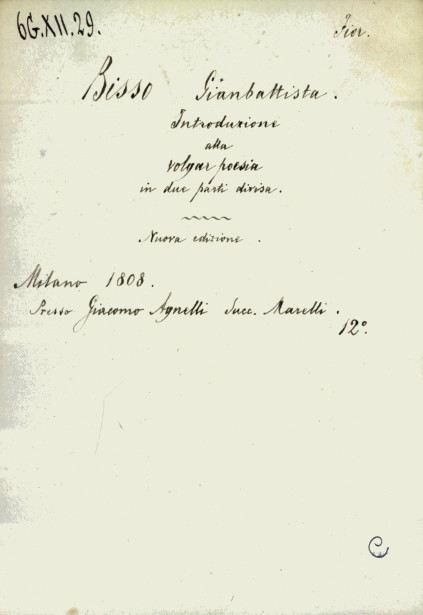 6G.XII.29.
Fior.
Bisso Gianbattista.
Introduzione
alla
volgar poesia
in due parti divisa.
Nuova edizione.
Milano 1808.
Presso Giacomo Agnelli Succ. Marelli.
12°.
C